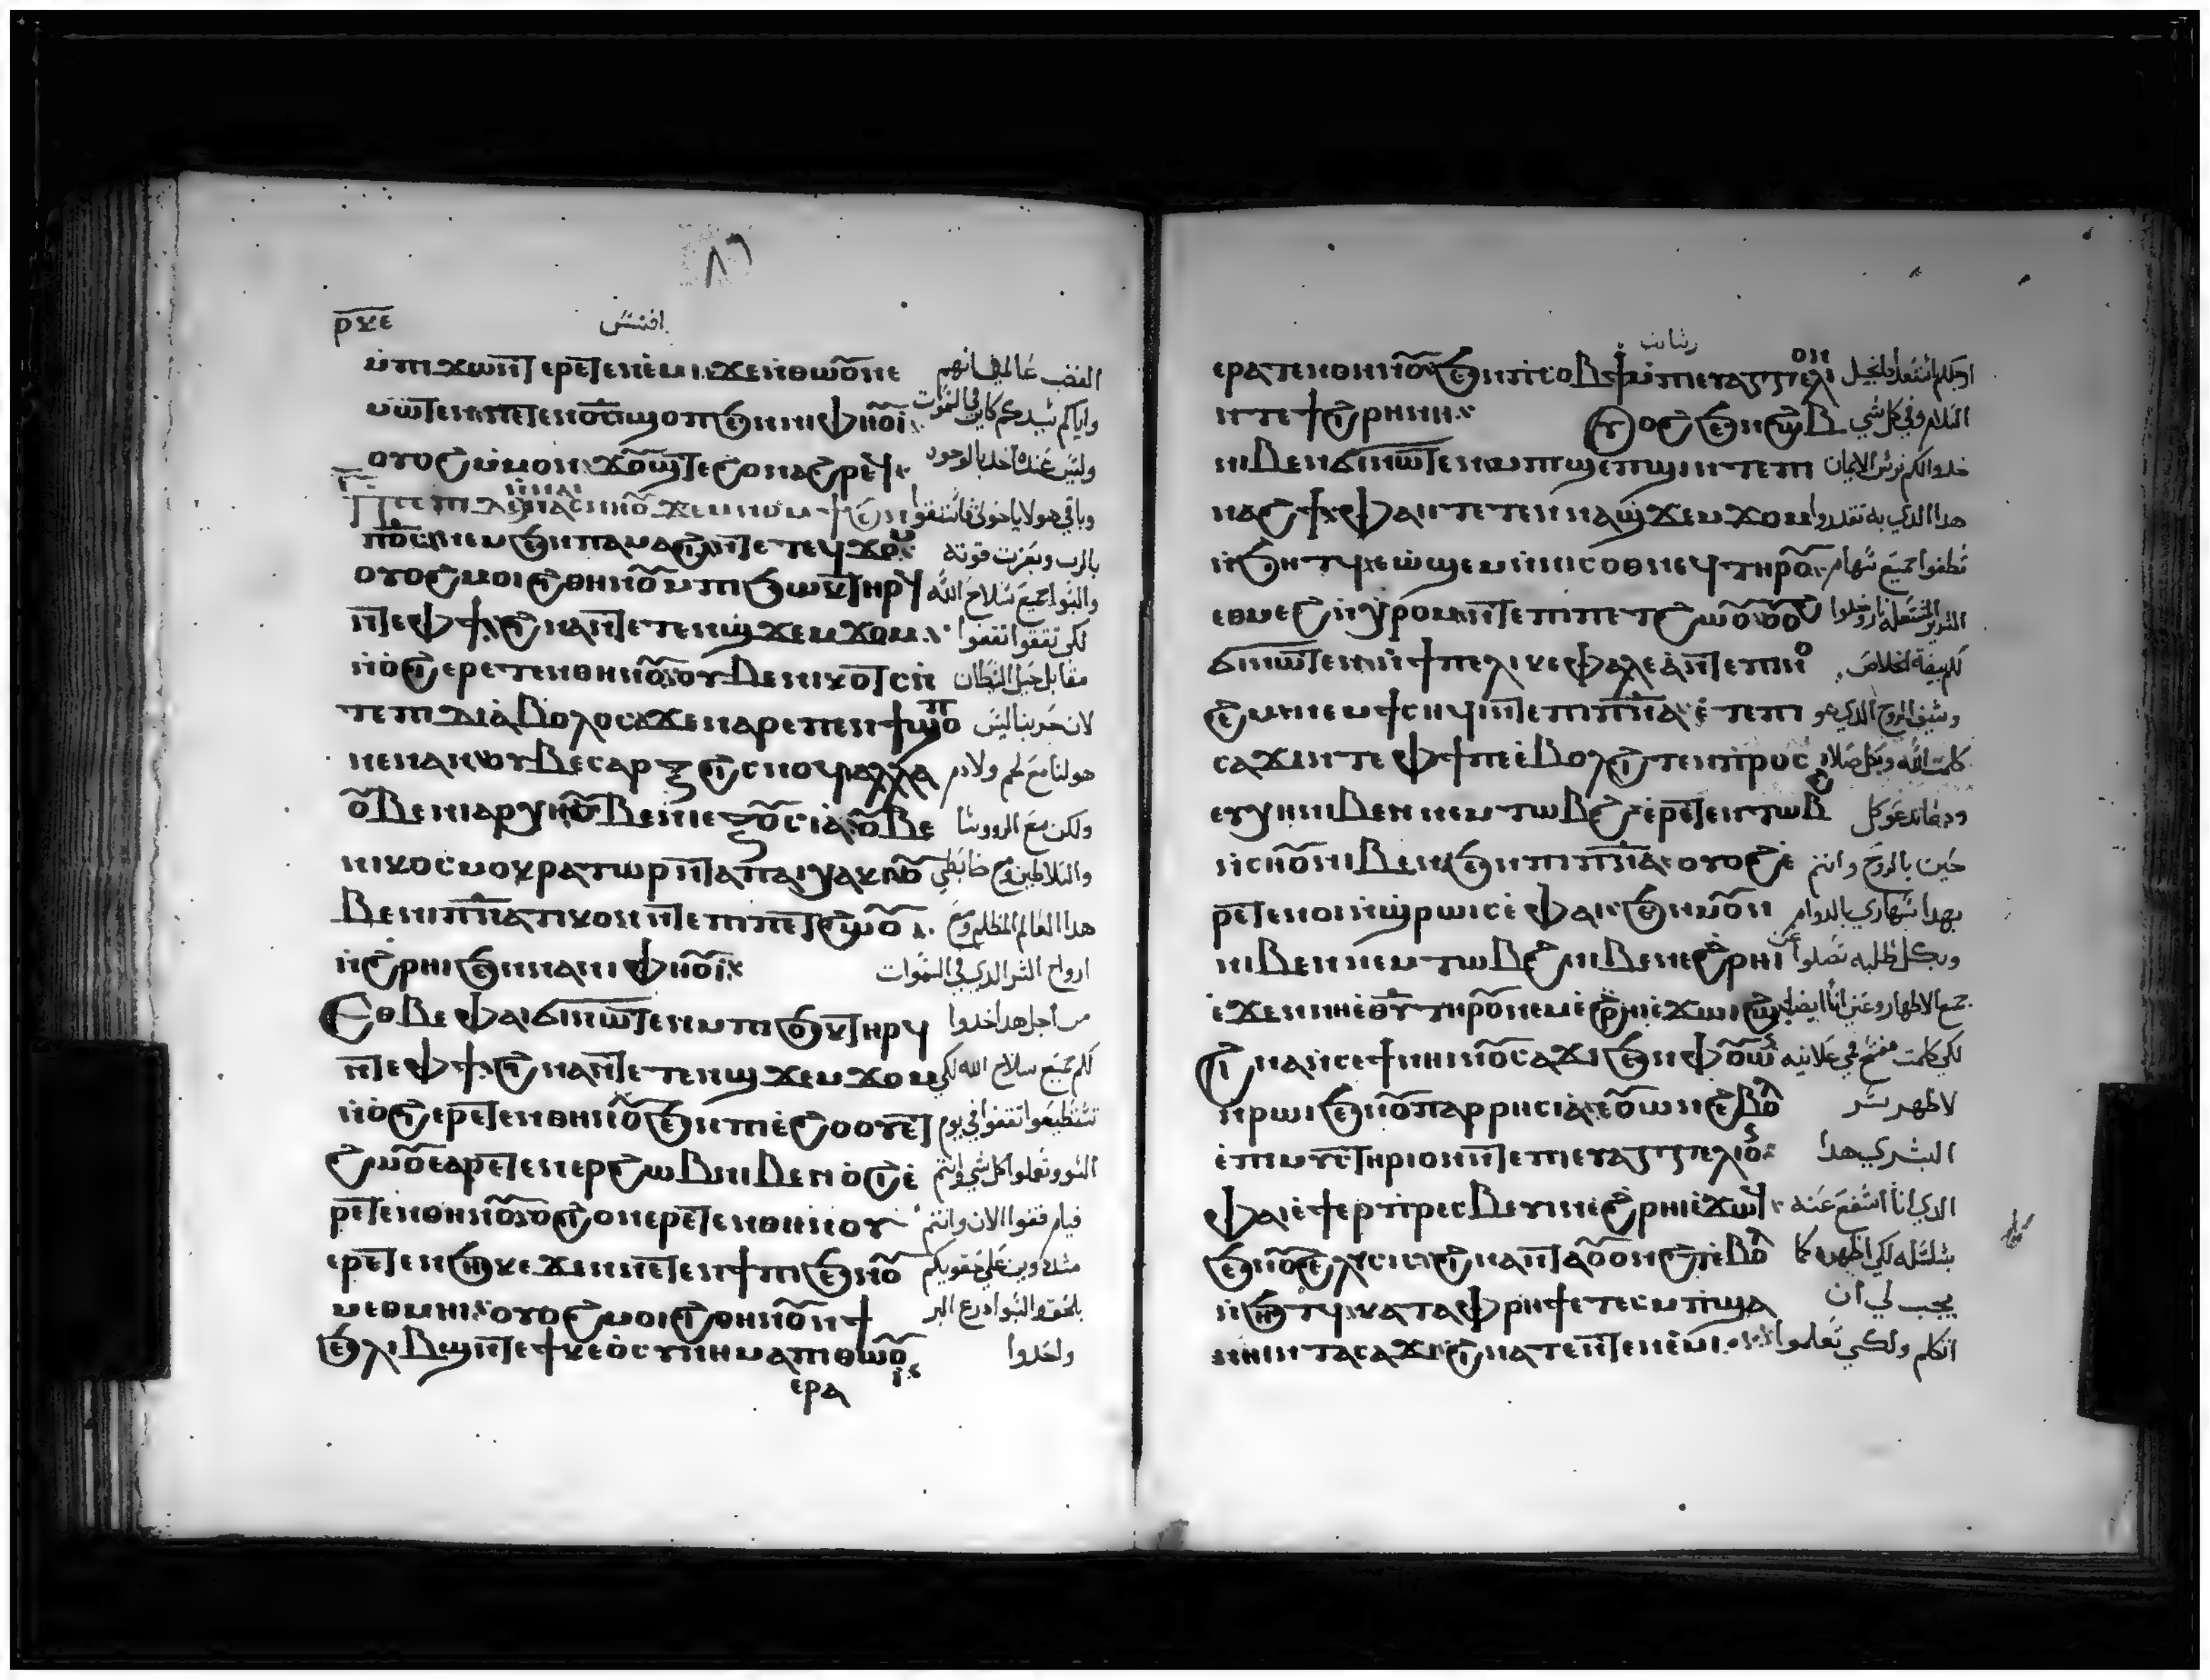 ⲣⲝⲉ افسس
ⲙ̇ⲡⲓϫⲱⲛ̅ⲧ ⲉⲣⲉ̅ⲧⲉⲛⲉ̇ⲙⲓ ϫⲉⲛⲑⲱⲟ̅ⲛⲉ الغضب عالمين انهم
ⲙⲱ̅ⲧⲉⲛⲡⲉⲧⲉⲛⲟ̅ⲥ̅ϣⲟⲡϧⲉⲛⲛⲓⲫⲏⲟ̅ⲓ̇ واياكم سيدكم كاين في السموات
ⲟⲩⲟϩⲙ̇ⲙⲟⲛ ϫⲟ̅ϣ̅ⲧⲉϩⲟⲛⲁϩⲣⲉ̅ϥ وليس عنده اخد بالوجوه
ⲡ̅ⲟ̅ⲥ̅ⲛⲉⲙϧⲉⲛⲡⲁⲙⲁϩⲓⲛ̅ⲧⲉⲧⲉϥϫⲟ̅ⲙ بالرب وبعزت قوته
ⲟⲩⲟϩⲙⲟⲓϩⲓⲑⲏⲛⲟ̅ⲩⲙ̇ⲡⲓϧⲱⲕ̅ⲧⲏⲣϥ والبسوا جميع سلاح الله
ⲛ̅ⲧⲉⲫϯ ϩⲓⲛⲁⲛ̅ⲧⲉⲧⲉⲛϣϫⲉⲙϫⲟⲙ لكي تقفوا تقفوا
ⲛ̇ⲟ̇ϩⲓⲉⲣⲉⲧⲉⲛⲑⲏⲛⲟ̅ⲩⲟⲩⲃⲉⲛⲓⲕⲟ̅ⲧⲥⲛ̇ مقابل حيل الشيطان
ⲧⲉⲡⲇⲓⲁ̇ⲃⲟⲗⲟⲥ ϫⲉⲛⲁⲣⲉⲡⲉⲛϯϣⲟ̅ⲡ لان حربنا ليس
ⲛⲉⲛⲁⲛⲟⲩⲃⲉⲥⲁⲣⲝϩⲓⲥⲛⲟϥⲁⲗⲗⲁ هو لنا مع لحم ولا دم
ⲟ̅ⲃⲉⲛⲓⲁⲣⲭⲏⲟ̅ⲃⲉⲛⲓⲉⲝⲟ̅ⲥⲓⲁ ⲟ̅ⲃⲉ ولكن مع الروسا
ⲛⲓⲕⲟⲥⲙⲟⲕⲣⲁⲧⲱⲣⲛ̅ⲧⲁⲡⲁⲓⲭⲁⲕⲓ والسلاطين مع ضابطي
ⲃⲉⲛⲓⲡ̅ⲛ̅ⲁ̅ⲧⲓⲕⲟⲛⲛ̅ⲧⲉⲡⲡⲉ̅ⲧϩⲱⲟ̅ⲩ هدا العالم المظلم ومع
ⲛ̇ϩⲣⲏⲓϧⲉⲛⲛⲁⲛⲓⲫⲏⲟ̅ⲓ̇ ارواح الشر الدي في السموات
ⲉⲑⲃⲉⲫⲁⲓϭⲓⲛⲱ̅ⲧⲉⲛⲙⲡⲓϧⲱⲕ̅ⲧⲏⲣϥ من اجل هدا خدوا
ⲛ̅ⲧⲉⲫϯ ϩⲓⲛⲁⲛ̅ⲧⲉⲧⲉⲛϣϫⲉⲙϫⲟⲙ لكم جميع سلاح الله لكي
ⲛ̇ⲟ̇ϩⲓⲉⲣⲉ̅ⲧⲉⲛⲑⲏⲛⲟ̅ⲩϧⲉⲛⲡⲓⲉ̇ϩⲟⲟⲩⲉ̅ⲧ تستطيعوا تقفوا في يوم
ϩⲱⲟ̅ⲉⲁⲣⲉ̅ⲧⲉⲛⲉⲣϩⲱⲃⲛⲓⲃⲉⲛ ⲟ̇ϩⲓⲉ̇ السو وتعملوا كل شي وانتم
ⲣⲉ̅ⲧⲉⲛⲑⲏⲛⲟ̅ⲩⲟ̇ϩⲓⲟⲛⲉⲣⲉ̅ⲧⲉⲛⲑⲏⲛⲟⲩ قيام قفوا الان وانتم
ⲉⲣⲉ̅ⲧⲉⲛϧⲏⲕ ⲉϫⲉⲛⲛⲉ̅ⲧⲉⲛϯⲡⲓϧⲉⲛⲟ̅ مشدودين علي حقويكم
ⲙⲉⲑⲙⲏⲓ ⲟⲩⲟϩⲙⲟⲓϩⲓⲑⲏⲛⲟ̅ⲛϯ بالحق والبسوا درع البر
ϧⲉⲗⲓⲃϣⲛ̅ⲧⲉϯⲙⲉⲑⲙⲏⲓ واخدوا
ⲉⲣⲁ
رسالت
ⲉⲣⲁⲧⲉⲛⲑⲏⲛⲟ̅ⲩϧⲉⲛⲡⲓⲥⲟⲃϯ ⲙ̇ⲡⲓⲉⲩⲁⲅⲅⲉⲗⲓⲟⲛ ارجلكم استعداد انجيل
ⲛ̇ⲧⲉϯϩⲓⲣⲏⲛⲏ ⲟⲩⲟϩϧⲉⲛϩⲱⲃ السلام وفي كل شي
ⲛⲓⲃⲉⲛϭⲓⲛⲱ̅ⲧⲉⲛⲙⲡⲓϣⲉⲡϣⲓⲛⲧⲉⲡ خدوا لكم ترس الايمان
ⲛⲁϩϯ ⲫⲁⲓⲧⲉⲧⲉⲛⲛⲁϣϫⲉⲙϫⲟⲙ هدا الدي به تقدروا
ⲛ̇ϧⲏⲧϥ ⲉⲱ̇ϣⲉⲙⲛ̇ⲛⲓⲥⲟⲑⲛⲉϥⲧⲏⲣⲟ̅ⲩ تطفوا جميع سهام
ⲉⲑⲙⲉϩⲛ̇ⲭⲣⲟⲙⲛ̅ⲧⲉⲡⲡⲉⲧϩⲱⲟ̅ⲩ الشرير المشتعله نار وخدوا
ϭⲓⲛⲱ̅ⲧⲉⲛⲛ̇ϯⲡⲉⲣⲓⲕⲉⲫⲁⲗⲉⲁ̇ⲛ̅ⲧⲉⲡⲓⲟ لكم بيضة الخلاص
ϩⲉⲙⲛⲉⲙϯⲥⲏϥⲓⲛ̅ⲧⲉⲡⲓⲡ̅ⲛ̅ⲁ̅ ⲉ̇ⲧⲉⲡ وسيف الروح الدي هو
ⲥⲁϫⲓⲛⲧⲉⲫϯⲡⲉⲉ̇ⲃⲟⲗϩⲓⲧⲉⲛⲡⲣⲟⲥ كلمت الله وبكل صلاه
ⲉⲩⲭⲏⲛⲓⲃⲉⲛⲛⲉⲙⲧⲱⲃϩ ⲉ̇ⲣⲉ̅ⲧⲉⲛⲧⲱⲃϩ ودعا تدعو كل
ⲛ̇ⲥⲛⲟ̅ⲛⲓⲃⲉⲛϧⲉⲛⲡⲓⲡ̅ⲛ̅ⲁ̅ ⲟⲩⲟϩⲉ̇ حين بالروح وانتم
ⲣⲉ̅ⲧⲉⲛⲟⲓⲛ̇ϣⲣⲱⲓⲥⲉ̇ⲫⲁⲓϧⲉⲛⲙⲟ̅ⲛ بهدا سهاري بالدوام
ⲛⲓⲃⲉⲛⲛⲉⲙⲧⲱⲃϩⲛⲓⲃⲉⲛⲉϩⲣⲏⲓ وبكل طلبه تصلوا عن
ⲉ̇ϫⲉⲛⲛⲏⲉⲑ̅ⲩ̅ⲧⲏⲣⲟ̅ⲛⲉⲙⲉ̇ϩⲣⲏⲓⲉϫⲱⲓϩⲱ جميع الاطهار وعني انا ايضا
ϩⲓⲛⲁⲛ̇ⲥⲉϯⲛⲏⲓⲛⲟ̅ⲥⲁϫⲓϧⲉⲛⲫⲟ̅ⲱⲛ لكي كلمت مفتح في علانيه
ⲛ̇ⲣⲱⲓϧⲉⲛⲟ̅ⲡⲁⲣⲣⲏⲥⲓⲁ ⲉⲟ̅ⲱⲛϩⲉ̇ⲃⲟ̅ⲗ لاظهر سر
ⲉ̇ⲡⲓⲙⲩⲥ̅ⲧⲏⲣⲓⲟⲛⲛ̅ⲧⲉⲡⲓⲉⲩⲁⲅⲅⲉⲗⲓⲟ̅ البشري هدا
ⲫⲁⲓⲉ̇ϯⲉⲣⲡⲣⲉⲥⲃⲉⲩⲓⲛⲉ̇ϩⲣⲏⲓⲉϫⲱϥ الدي انا اشفع عنه
ϧⲉⲛⲟ̅ϩⲁⲗⲩⲥⲓⲥ ϩⲓⲛⲁⲛ̅ⲧⲁⲟ̅ⲟⲛϩϥⲉ̇ⲃⲟ̅ⲗ بسلسله لكي اظهره كما
ⲛ̇ϧⲏⲧϥ ⲕⲁⲧⲁⲫⲣⲏϯⲉⲧⲉⲥⲙ̇ⲡϣⲁ يجب لي ان
ⲛⲏⲓⲛ̇ⲧⲁⲥⲁϫⲓ ϩⲓⲛⲁⲧⲉ̅ⲛ̅ⲧⲉⲛⲉ̇ⲙⲓ اتكلم ولكي تعلموا